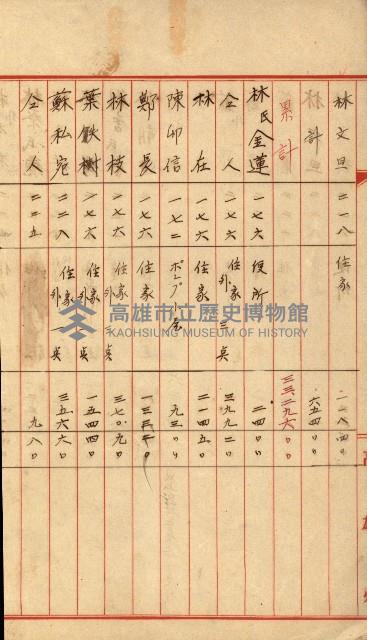 林文旦 二一八 住家 二一八四〇〇
計 六五四〇〇
累計 三三二九六〇〇
林氏金蓮 一七六 便所 二四〇〇
仝人 二七六 住家外三点 三九九二〇
林在 一七六 住家 二一四五〇
陳卯信 一七二 ポンプ屋 九三〇〇
鄭長 一七六 住家
林枝 一七六 住家外三点 三七〇九〇
葉欽樹 一七六 住家外 一五四四〇〇
蘇私宛 二二八 住家外一点 三五六六〇
仝人 二二五 九八〇
高雄市立歷史博物館
KAOHSIUNG MUSEUM OF HISTORY
高雄